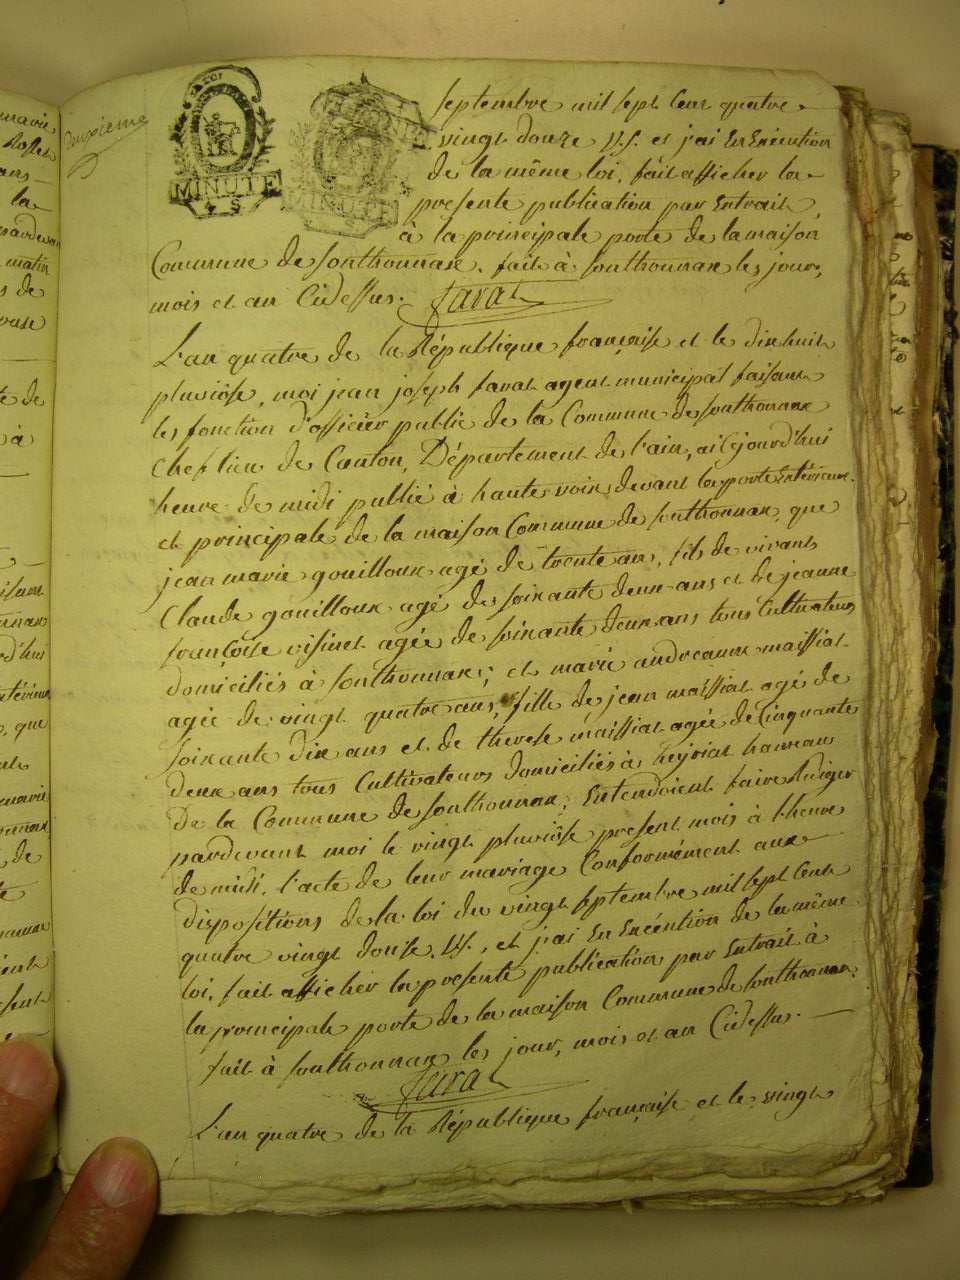 deuxieme
MINUTE
MINUTE
septembre mil sept cent quatre
vingt douze V.S. et j'ai en exécution
de la même loi, fait afficher la
presente publication par extrait,
à la principale porte de la maison
Commune de Sonthonnax. fait à Sonthonnax les jour,
mois et an Cidessus. favat
L'an quatre de la République française et le dix huit
pluviôse, moi jean joseph favat agent municipal faisant
les fonction d'officier public de la Commune de Sonthonnax
Chef lieu de Canton, Département de l'ain, ai Cejourd'hui
heure de midi publié à haute voix, devant la porte Extérieure
et principale de la maison Commune de Sonthonnax, que
jean marie gouilloux agé de trente an, fils de vivant
Claude gouilloux agé de soixante deux ans et de jeanne
françoise visinet agée de soixante deux ans tous Cultivateurs
domiciliés à Sonthonnax; et marie andreanne maissiat
agée de vingt quatre ans, fille de jean maissiat agé de
soixante dix ans et de therese maissiat agée de Cinquante
deux ans tous Cultivateurs domiciliés à heyriat hameau
de la Commune de Sonthonnax; Entendoient faire Rédiger
pardevant moi le vingt pluviôse present mois à l'heure
de midi, l'acte de leur mariage Conformément aux
dispositions de la loi du vingt septembre mil sept Cent
quatre vingt douze. V.S. et j'ai En Exécution de la même
loi, fait afficher la presente publication par Extrait à
la principale porte de la maison Commune de Sonthonnax
fait à Sonthonnax les jour, mois et an Cidessus.
favat
L'an quatre de la République française et le vingt